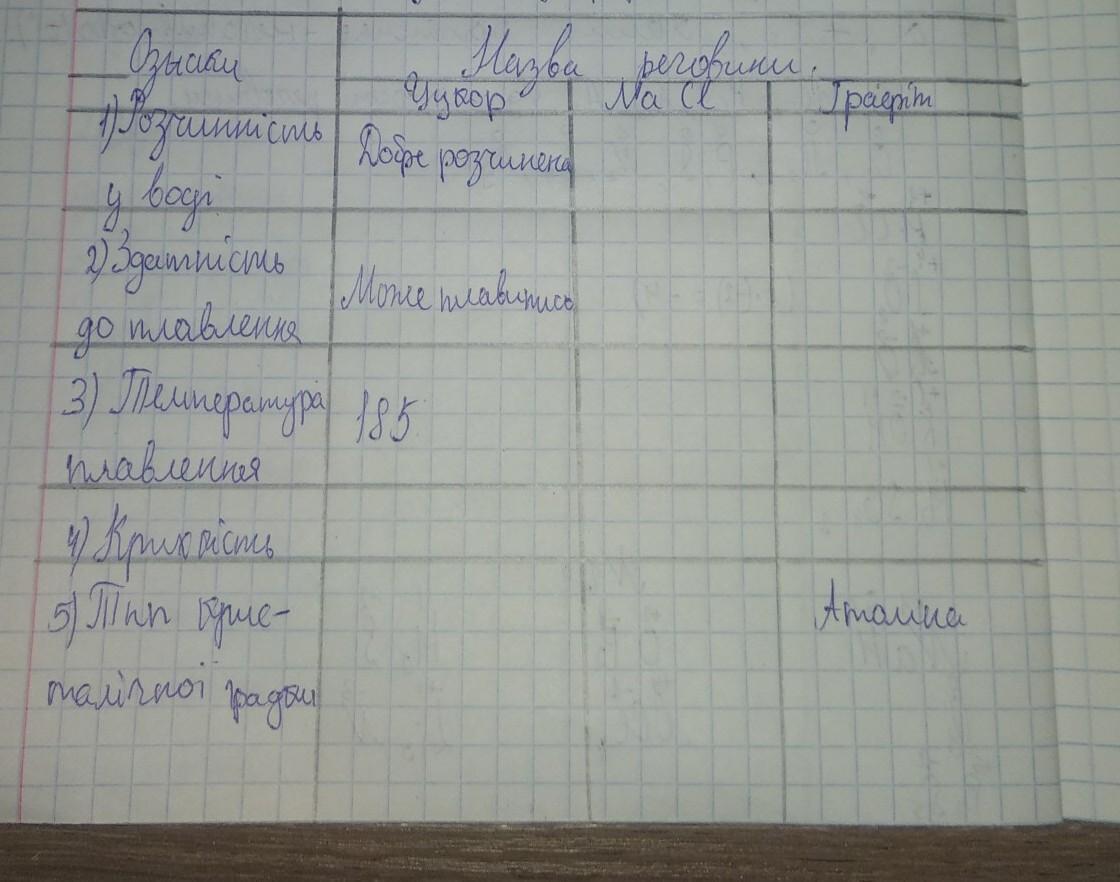 Ознаки Назва речовини.
Цукор Na Cl Графіт
1) Розчинність
у воді
Добре розчинена
2) Здатність
до плавлення
Може плавитись
3) Температура
плавлення
185
4) Крихкість
5) Тип крис-
талічної градки
Атомна